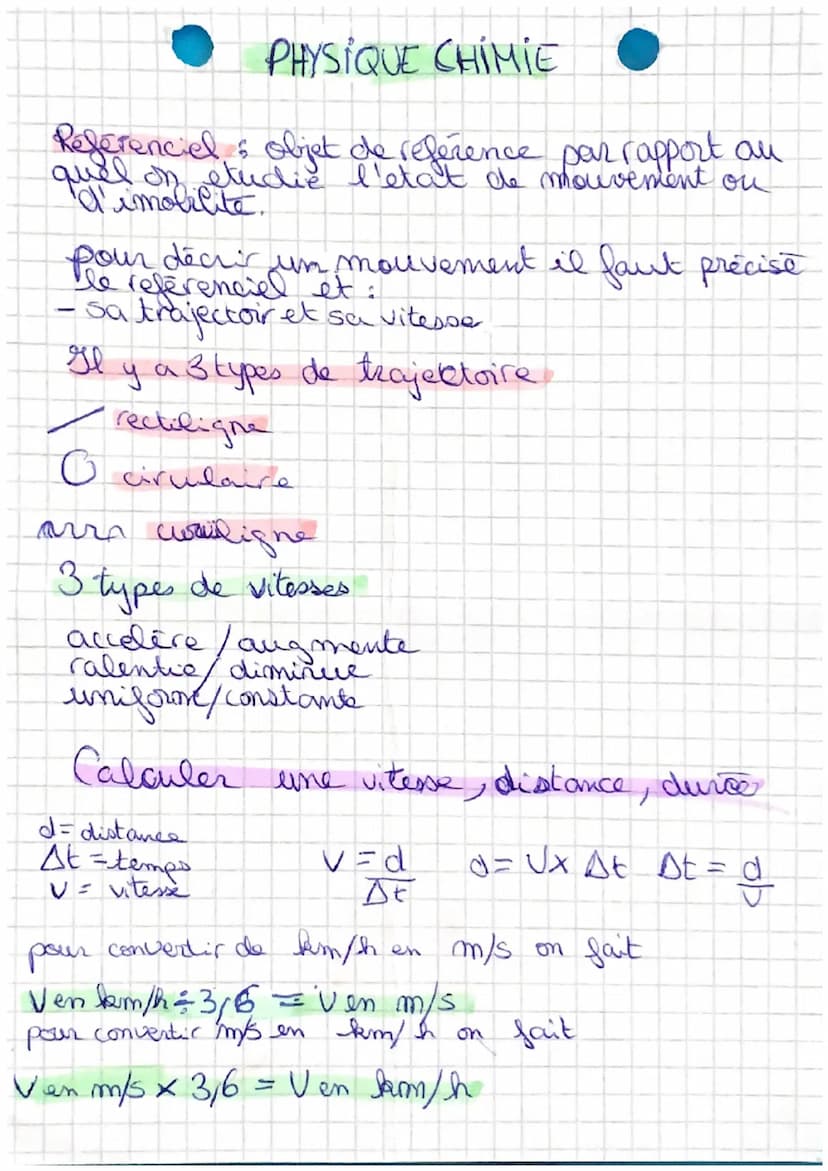 PHYSIQUE CHIMIE
Référenciel : objet de reférence par rapport au
quel on etudie l'etat de mouvement ou
d'imobilité.
pour décrir un mouvement il faut précisé
le reférenciel et :
- sa trajectoir et sa vitesse
Il y a 3 types de trajectoire
rectiligne
cirulaire
curviligne
3 types de vitesses
accelère / augmente
ralentie / diminue
uniforme / constante
Calculer une vitesse, distance, durée
d = distance
Δt = temps
v = vitesse
V = d/Δt d = V x Δt Δt = d/V
pour convertir de km/h en m/s on fait
V en km/h ÷ 3,6 = V en m/s
pour convertir m/s en km/h on fait
V en m/s x 3,6 = V en km/h